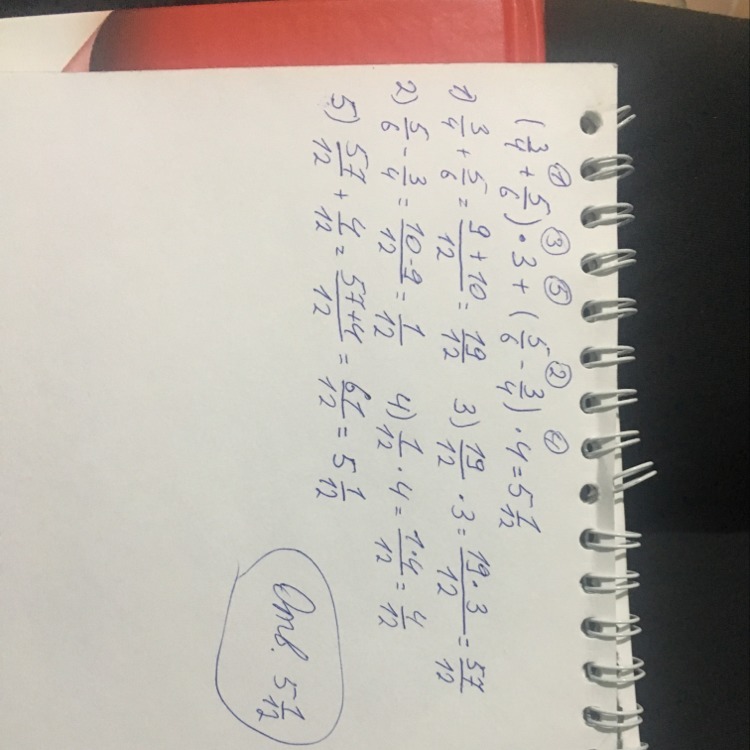 (3/4 + 5/6) · 3 + (5/6 - 3/4) · 4 = 5 1/12
① ③ ⑤ ② ④
1) 3/4 + 5/6 = (9 + 10)/12 = 19/12 3) 19/12 · 3 = (19 · 3)/12 = 57/12
2) 5/6 - 3/4 = (10 - 9)/12 = 1/12 4) 1/12 · 4 = (1 · 4)/12 = 4/12
5) 57/12 + 4/12 = (57 + 4)/12 = 61/12 = 5 1/12
Отв. 5 1/12